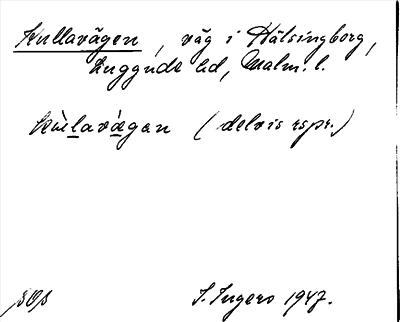 Kullavägen, väg i Hälsingborg,
Luggude hd, Malm. l.
Kùlavǽgan (delvis rspr.)
S. Ingers 1947.